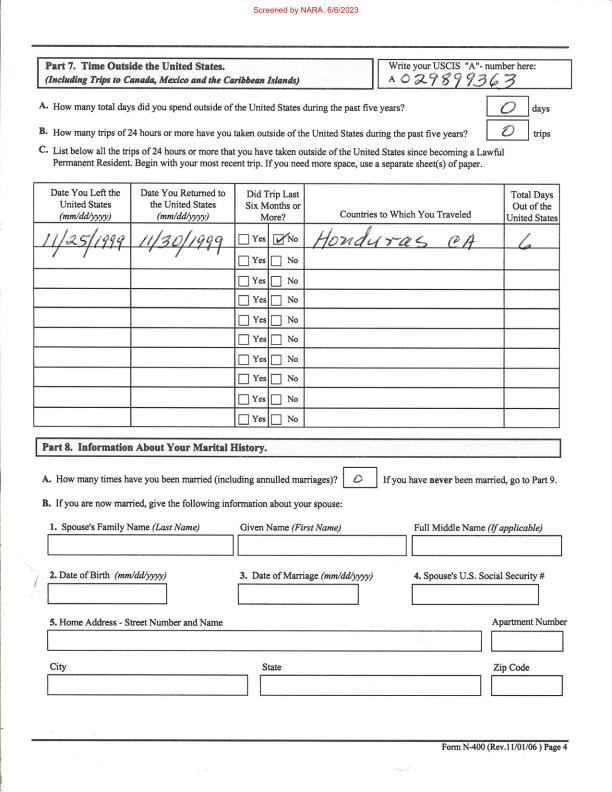 Screened by NARA, 6/6/2023
Part 7. Time Outside the United States.
(Including Trips to Canada, Mexico and the Caribbean Islands)
Write your USCIS "A"- number here:
A 029899363
A. How many total days did you spend outside of the United States during the past five years? 0 days
B. How many trips of 24 hours or more have you taken outside of the United States during the past five years? 0 trips
C. List below all the trips of 24 hours or more that you have taken outside of the United States since becoming a Lawful
Permanent Resident. Begin with your most recent trip. If you need more space, use a separate sheet(s) of paper.
Date You Left the
United States
(mm/dd/yyyy)
Date You Returned to
the United States
(mm/dd/yyyy)
Did Trip Last
Six Months or
More?
Countries to Which You Traveled
Total Days
Out of the
United States
11/25/1999 11/30/1999 Yes No Honduras CA 6
Yes No
Yes No
Yes No
Yes No
Yes No
Yes No
Yes No
Yes No
Yes No
Part 8. Information About Your Marital History.
A. How many times have you been married (including annulled marriages)? 0 If you have never been married, go to Part 9.
B. If you are now married, give the following information about your spouse:
1. Spouse's Family Name (Last Name) Given Name (First Name) Full Middle Name (If applicable)
2. Date of Birth (mm/dd/yyyy) 3. Date of Marriage (mm/dd/yyyy) 4. Spouse's U.S. Social Security #
5. Home Address - Street Number and Name Apartment Number
City State Zip Code
Form N-400 (Rev.11/01/06 ) Page 4